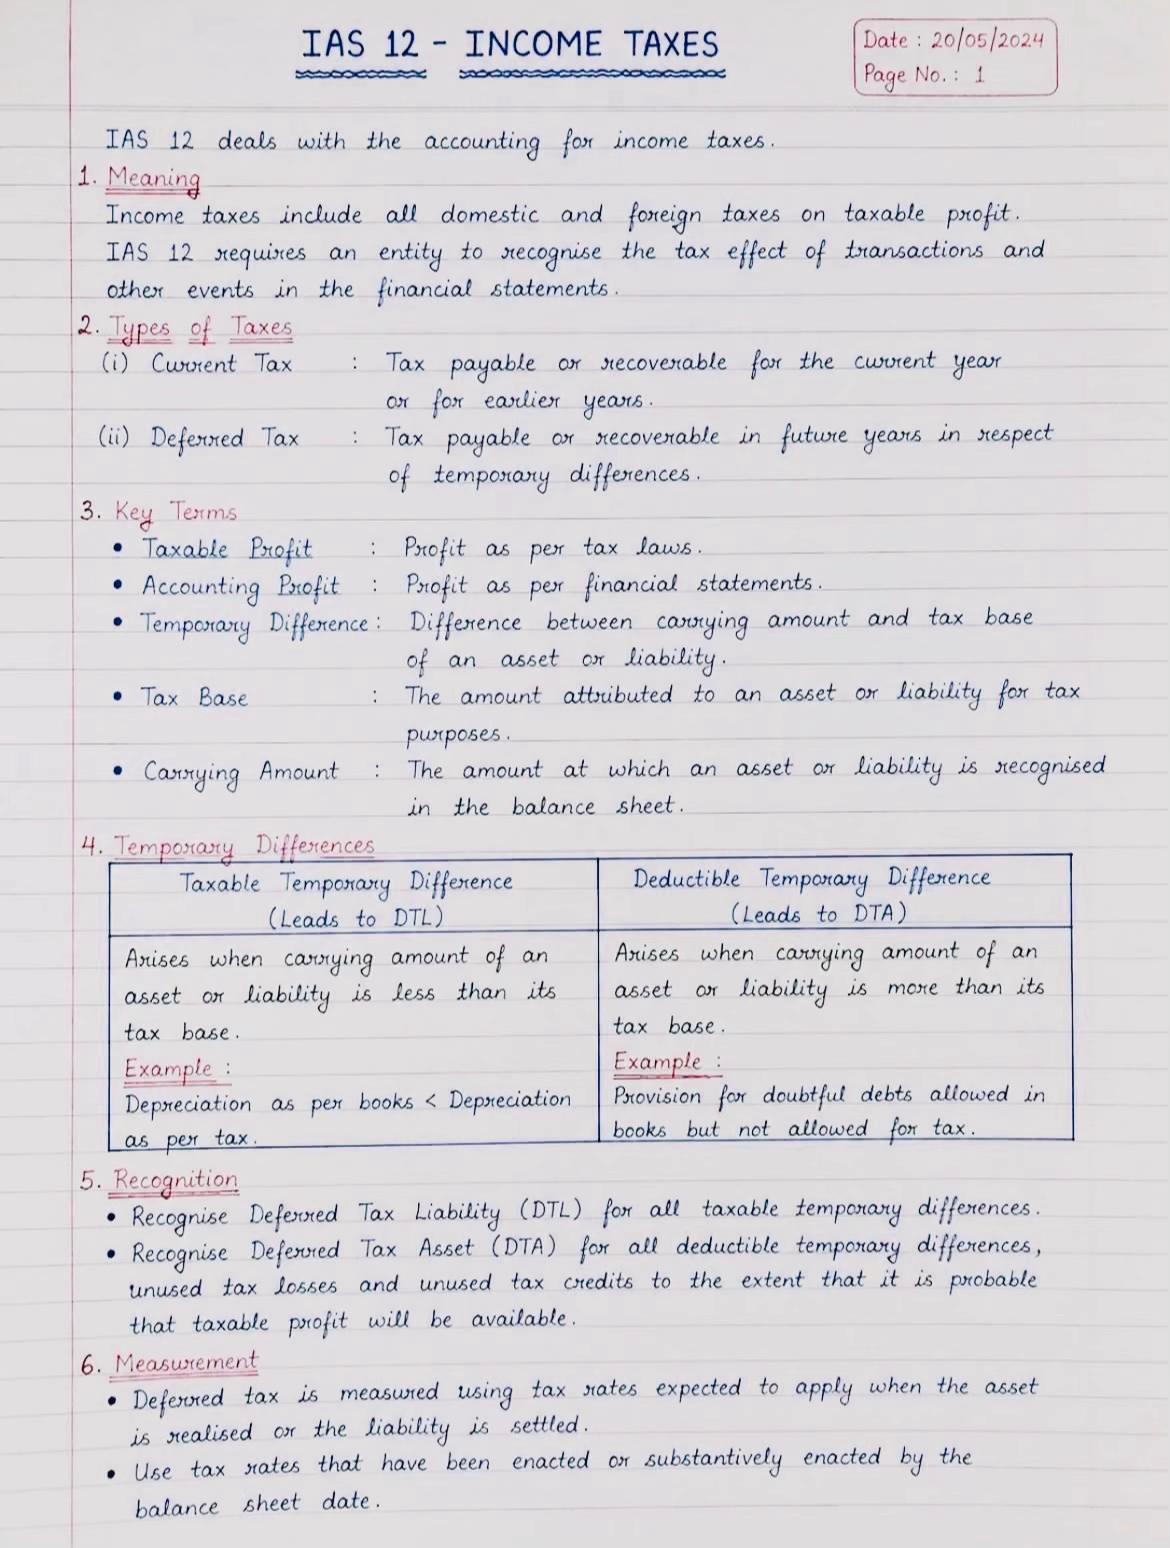 IAS 12 - INCOME TAXES
Date : 20/05/2024
Page No. : 1
IAS 12 deals with the accounting for income taxes.
1. Meaning
Income taxes include all domestic and foreign taxes on taxable profit.
IAS 12 requires an entity to recognise the tax effect of transactions and
other events in the financial statements.
2. Types of Taxes
(i) Current Tax : Tax payable or recoverable for the current year
or for earlier years.
(ii) Deferred Tax : Tax payable or recoverable in future years in respect
of temporary differences.
3. Key Terms
• Taxable Profit : Profit as per tax laws.
• Accounting Profit : Profit as per financial statements.
• Temporary Difference : Difference between carrying amount and tax base
of an asset or liability.
• Tax Base : The amount attributed to an asset or liability for tax
purposes.
• Carrying Amount : The amount at which an asset or liability is recognised
in the balance sheet.
4. Temporary Differences
Taxable Temporary Difference
(Leads to DTL)
Arises when carrying amount of an
asset or liability is less than its
tax base.
Example :
Depreciation as per books < Depreciation
as per tax.
Deductible Temporary Difference
(Leads to DTA)
Arises when carrying amount of an
asset or liability is more than its
tax base.
Example :
Provision for doubtful debts allowed in
books but not allowed for tax.
5. Recognition
• Recognise Deferred Tax Liability (DTL) for all taxable temporary differences.
• Recognise Deferred Tax Asset (DTA) for all deductible temporary differences,
unused tax losses and unused tax credits to the extent that it is probable
that taxable profit will be available.
6. Measurement
• Deferred tax is measured using tax rates expected to apply when the asset
is realised or the liability is settled.
• Use tax rates that have been enacted or substantively enacted by the
balance sheet date.